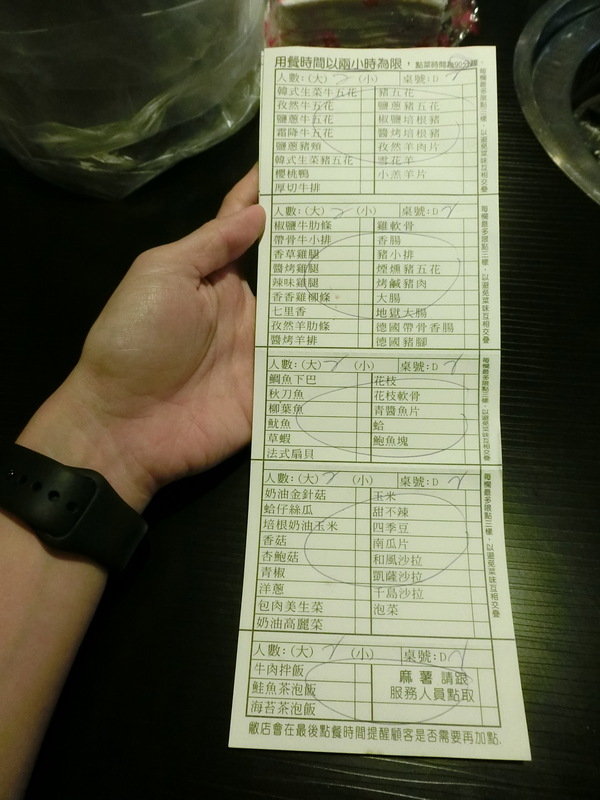 用餐時間以兩小時為限，點菜時間為90分鐘
人數:(大) (小) 桌號:D
韓式生菜牛五花 豬五花
孜然牛五花 鹽蔥豬五花
鹽蔥牛五花 椒鹽培根豬
霜降牛五花 醬烤培根豬
鹽蔥豬頰 孜然羊肉片
韓式生菜豬五花 雪花羊
櫻桃鴨 小羔羊片
厚切牛排
每欄最多限點三樣，以避免菜味互相交疊
人數:(大) (小) 桌號:D
椒鹽牛肋條 雞軟骨
帶骨牛小排 香腸
香草雞腿 豬小排
醬烤雞腿 煙燻豬五花
辣味雞腿 烤鹹豬肉
香香雞柳條 大腸
七里香 地獄大腸
孜然羊肋條 德國帶骨香腸
醬烤羊排 德國豬腳
每欄最多限點三樣，以避免菜味互相交疊
人數:(大) (小) 桌號:D
鯛魚下巴 花枝
秋刀魚 花枝軟骨
柳葉魚 青醬魚片
魷魚 蛤
草蝦 鮑魚塊
法式扇貝
每欄最多限點三樣，以避免菜味互相交疊
人數:(大) (小) 桌號:D
奶油金針菇 玉米
蛤仔絲瓜 甜不辣
培根奶油玉米 四季豆
香菇 南瓜片
杏鮑菇 和風沙拉
青椒 凱薩沙拉
洋蔥 千島沙拉
包肉美生菜 泡菜
奶油高麗菜
每欄最多限點三樣，以避免菜味互相交疊
人數:(大) (小) 桌號:D
牛肉拌飯 麻薯 請跟
鮭魚茶泡飯 服務人員點取
海苔茶泡飯
敝店會在最後點餐時間提醒顧客是否需要再加點.